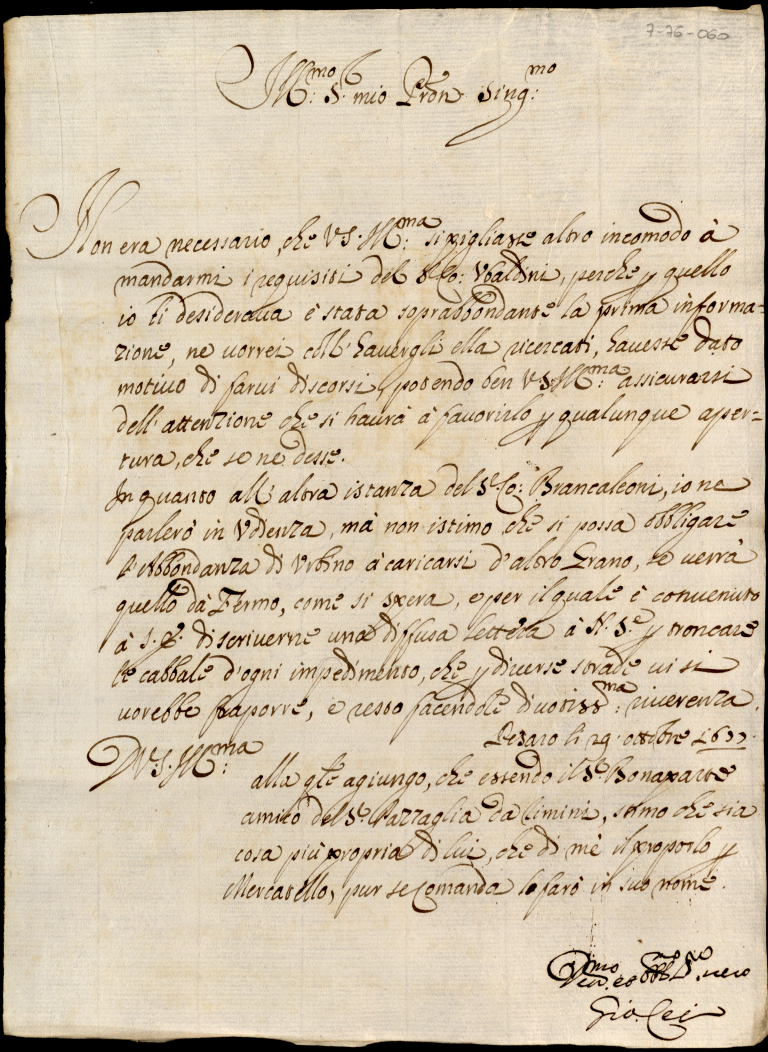 7-76-060
Ill:mo S.r mio Pron Sing:mo
Non era necessario, che VS. Ill:ma si pigliasse altro incomodo à
mandarmi i requisiti del S.r Co: Vbaldini, perche p quello
io li desideraua è stata soprabbondante la prima informa=
zione, ne uorrei coll'hauergli ella ricercati, hauesse dato
motiuo di farui discorsi, potendo ben VS. Ill:ma assicurarsi
dell'attenzione che si haurà à fauorirlo p qualunque aper=
tura, che se ne desse.
In quanto all'altra istanza del S.r Co: Brancaleoni, io ne
parlerò in Vdienza, mà non istimo che si possa obbligare
l'Abbondanza di Vrbino à caricarsi d'altro Grano, se uerrà
quello dà Fermo, come si spera, e per il quale è conuenuto
à S. E. di scriuerne una diffusa lettera à N. S.re p troncare
le cabbale d'ogni impedimento, che p diuerse strade ui si
uorebbe fraporre, e resto facendole diuotiss:ma riuerenza.
Pesaro li 29 ottobre
D VS. Ill:ma
alla qle agiungo, che essendo il S.r Bonaparte
amico del S.r Pazzaglia da Cimini, stimo che sia
cosa più propria di lui, che di mè il proporlo p
Mercatello, pur se Comanda lo farò in suo nome.
Diu:mo et obb:mo S.re uero
Gio. Cei